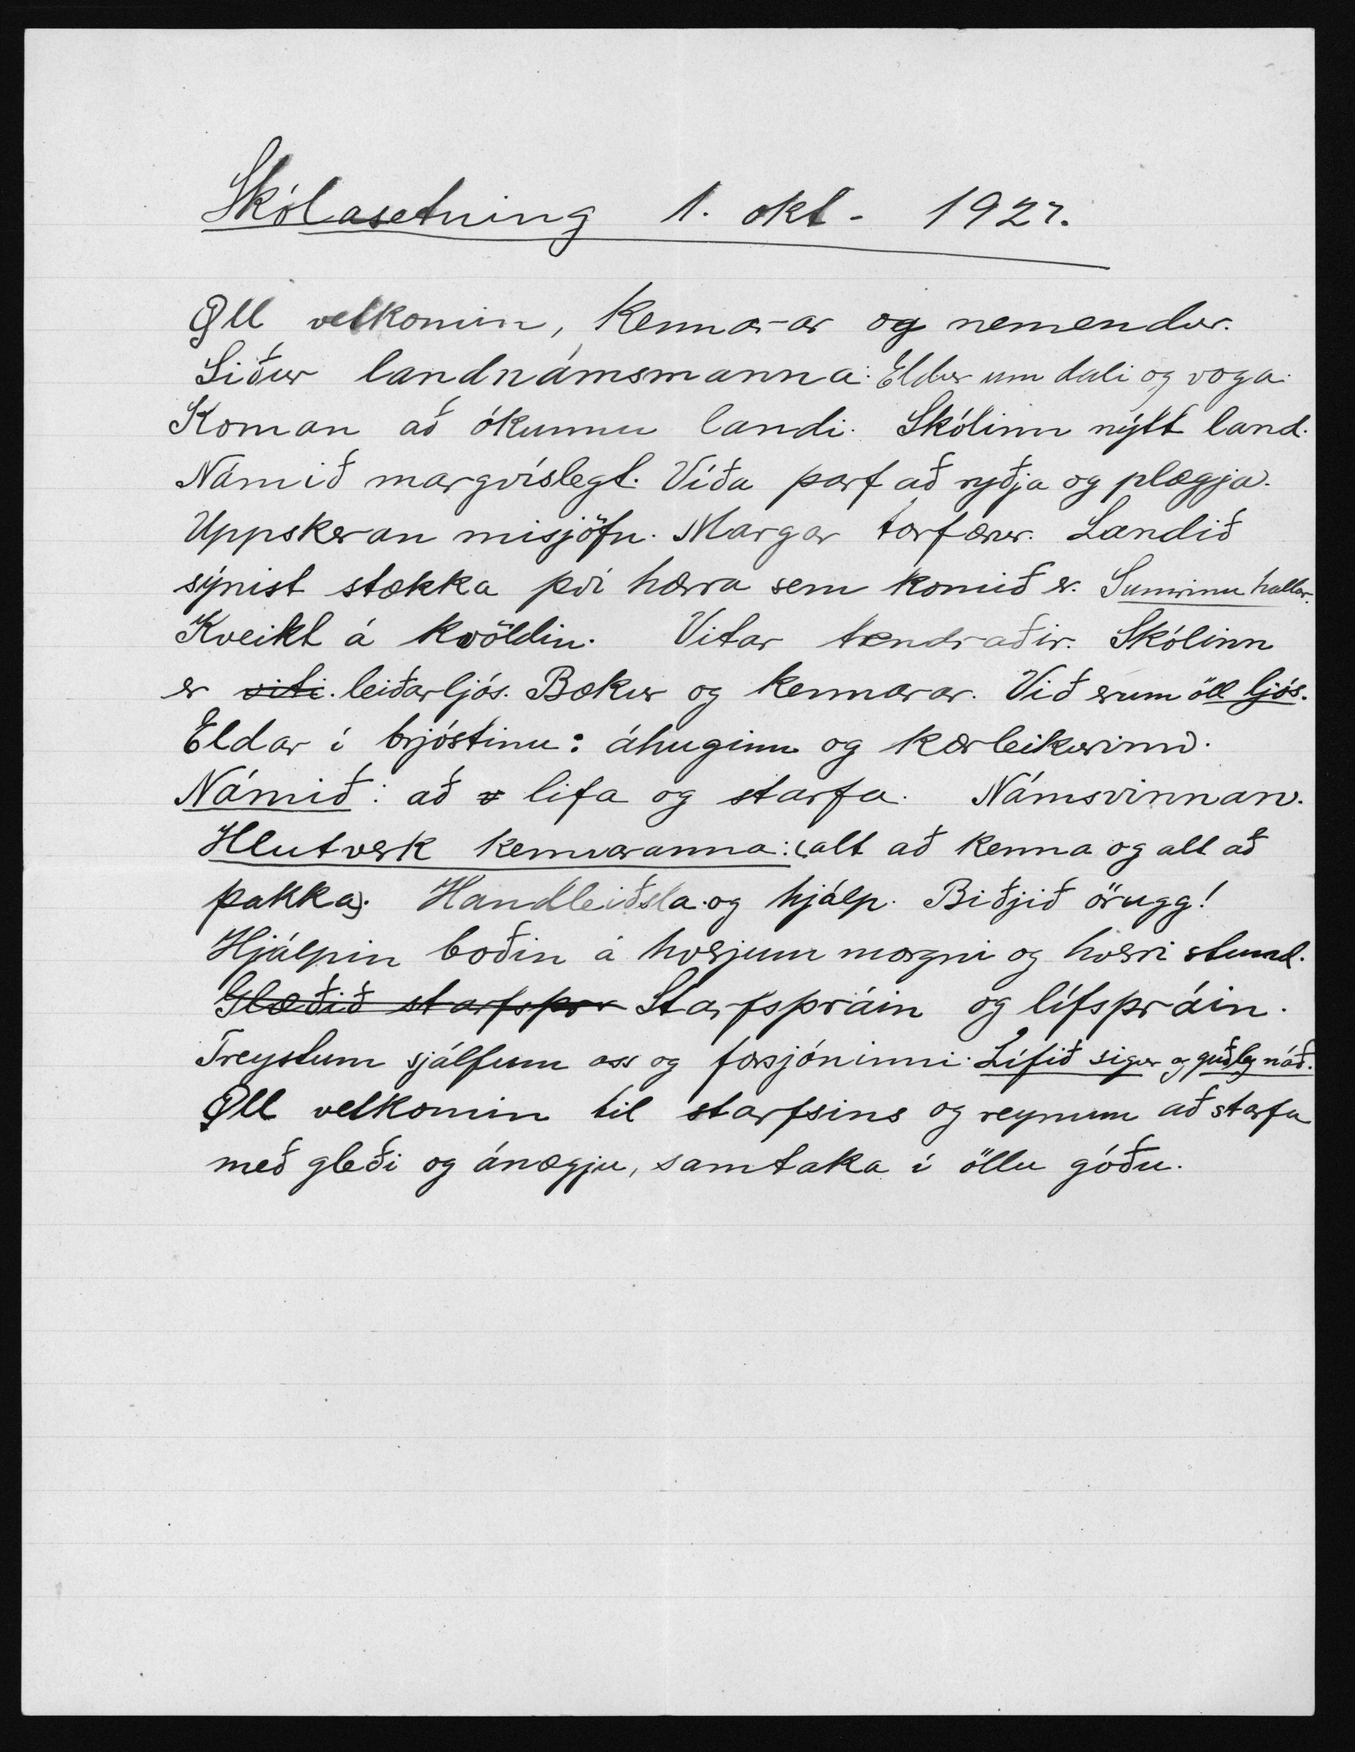 Skólasetning 1. okt. 1927.
Öll velkomin, kennarar og nemendur.
Siður landnámsmanna: Eldur um dali og voga.
Koman að ókunnu landi. Skólinn nýtt land.
Námið margvíslegt. Víða þarf að ryðja og plægja.
Uppskeran misjöfn. Margar torfærur. Landið
sýnist stækka því hærra sem komið er. Sumrinu hallar.
Kveikt á kvöldin. Vitar tendraðir. Skólinn
er viti. leiðarljós. Bækur og kennarar. Við erum öll ljós.
Eldar í brjóstinu: áhuginn og kærleikurinn.
Námið: að lifa og starfa. Námsvinnan.
Hlutverk kennaranna: (alt að kenna og alt að
þakka). Handleiðsla og hjálp. Biðjið örugg!
Hjálpin boðin á hverjum morgni og hverri stund.
Glæðið starfsþr Starfsþráin og lífsþráin.
Treystum sjálfum oss og forsjóninni. Lífið sigur og guðleg náð.
Öll velkomin til starfsins og reynum að starfa
með gleði og ánægju, samtaka í öllu góðu.